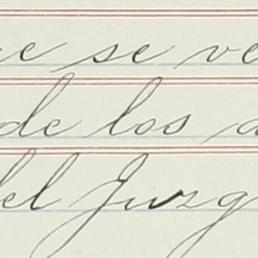 se ve
de los
del Juzg